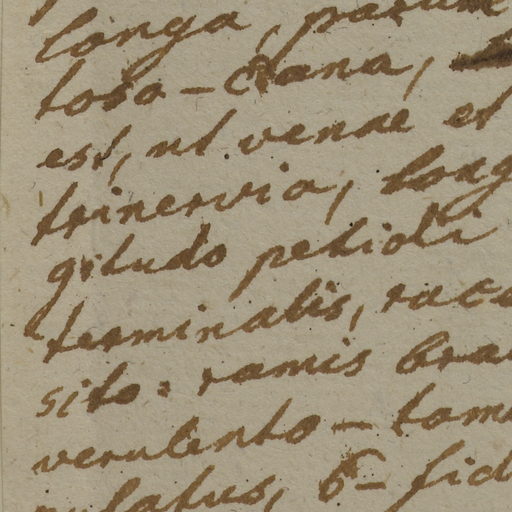 longa, parum
toso-crana,
est, ut venae et
trinervia, long
gitudo petioli
terminalis, race
sito: ramis bra
verulento-tom
pulatus, 6-fid